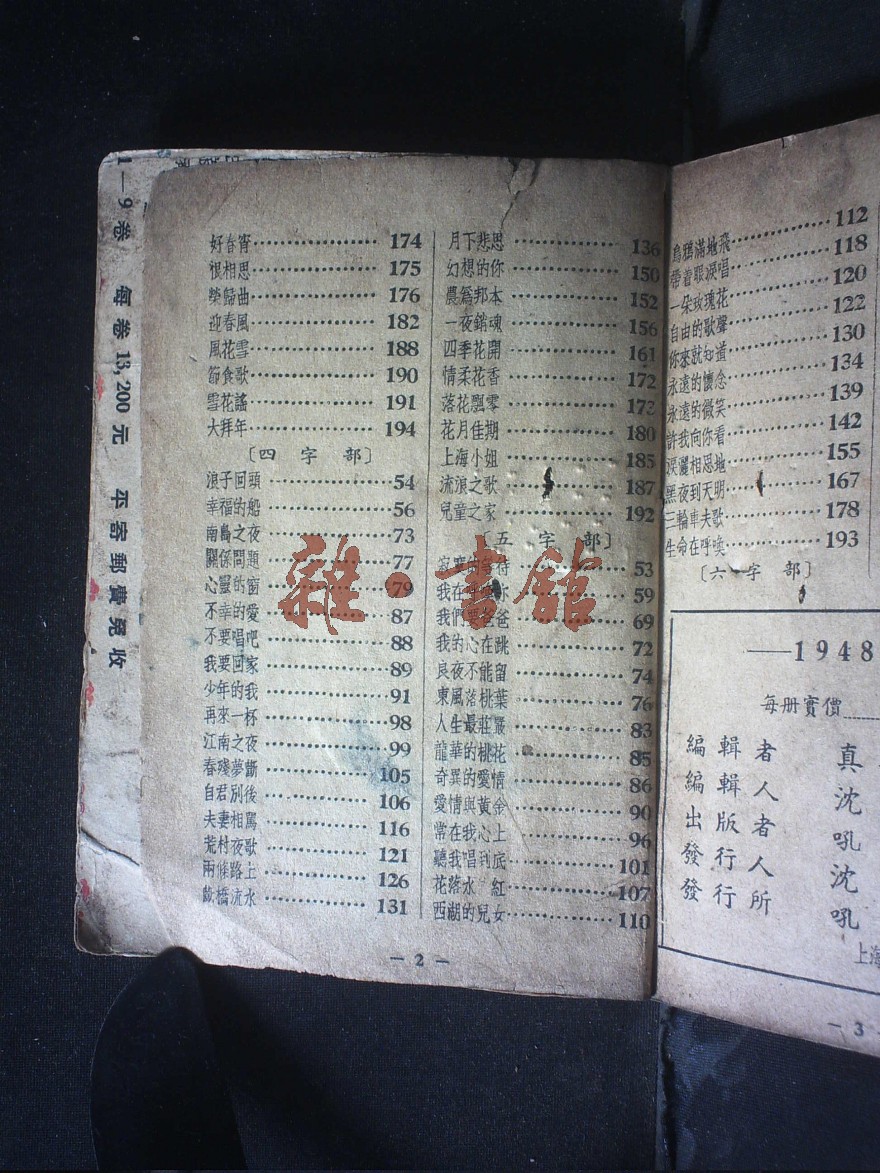 1—9卷 每卷13,200元 平寄郵費免收
好春宵 174
恨相思 175
榮歸曲 176
迎春風 182
風花雪 188
節食歌 190
雪花謠 191
大拜年 194
〔四字部〕
浪子回頭 54
幸福的船 56
南島之夜 73
關係問題 77
心靈的窗 79
不幸的愛 87
不要唱吧 88
我要回家 89
少年的我 91
再來一杯 98
江南之夜 99
春殘夢斷 105
自君別後 106
夫妻相罵 116
荒村夜歌 121
兩條路上 126
橋流水 131
月下悲思 136
幻想的你 150
農爲邦本 152
一夜銷魂 156
四季花開 161
情柔花香 172
落花飄零 173
花月佳期 180
上海小姐 185
流浪之歌 187
兒童之家 192
〔五字部〕
寂寞的等待 53
我在 你 59
我們 爸 69
我的心在跳 72
良夜不能留 74
東風落桃葉 76
人生最莊嚴 83
龍華的桃花 85
奇異的愛情 86
愛情與黃金 90
常在我心上 96
聽我唱到底 101
花落水 紅 107
西湖的兒女 110
—2—
112
烏鴉滿地飛 118
帶着眼淚唱 120
一朵玫瑰花 122
自由的歌聲 130
你來就知道 134
永遠的懷念 139
永遠的微笑 142
許我向你看 155
淚灑相思地 167
黑夜到天明 178
三輪車夫歌 193
生命在呼喚
〔六字部〕
—1948
每册實價
編輯者 真
編輯人 沈
出版者 吼
發行人 沈
發行所 吼
上海
—3
雜·書館